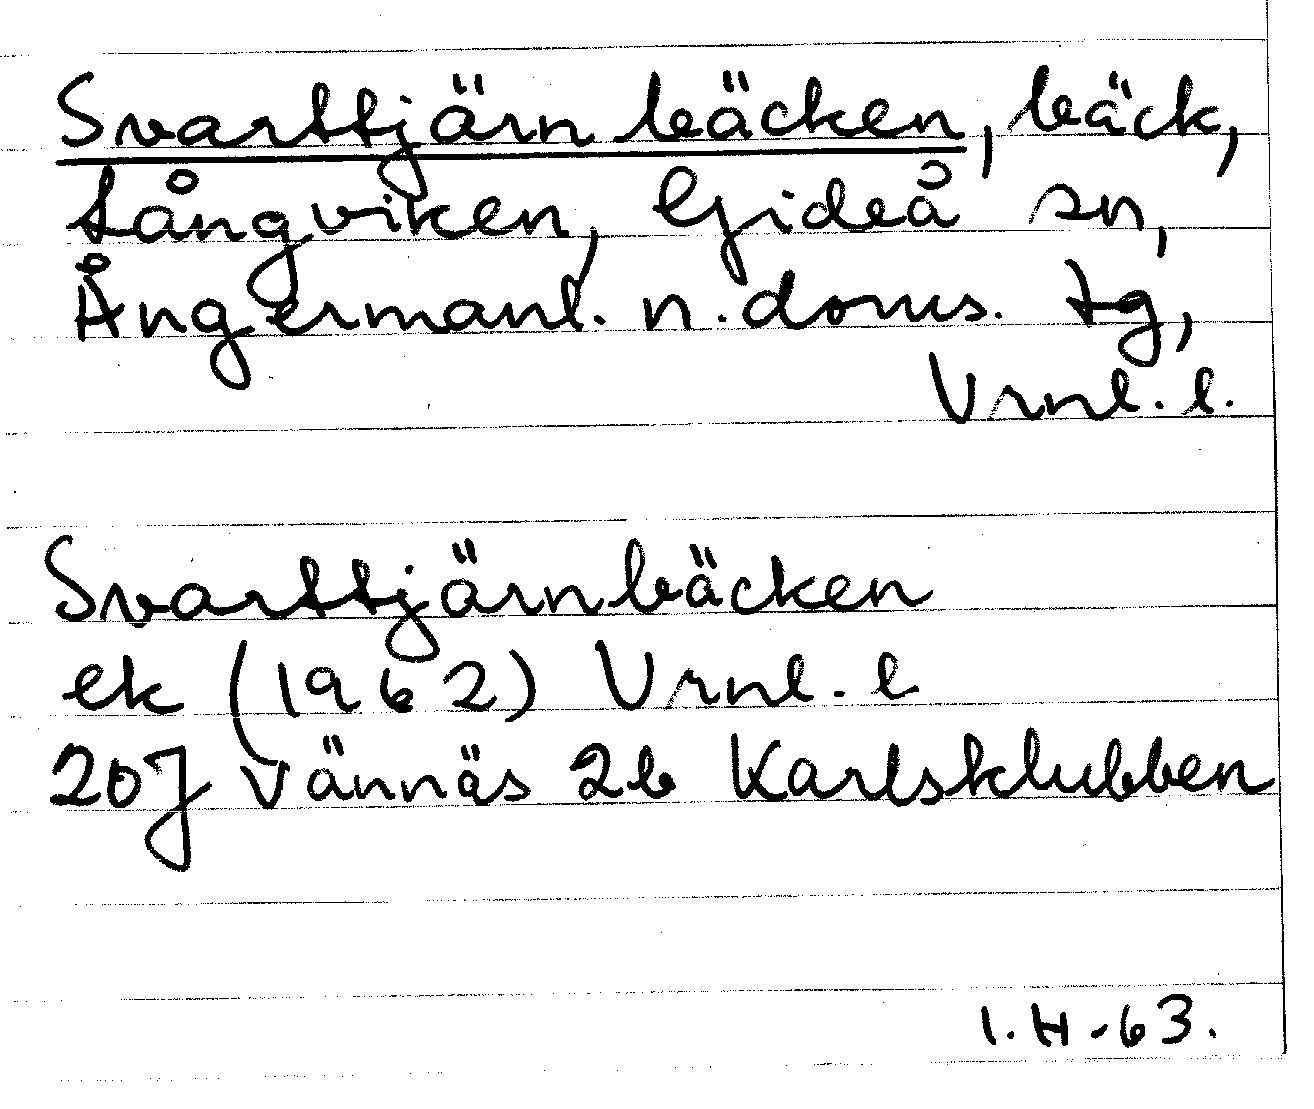 Svarttjärnbäcken, bäck,
Långviken, Gideå sn,
Ångermanl. n. doms. tg,
Vrnl. l.
Svarttjärnbäcken
ek (1962) Vrnl. l
20J Vännäs 2b Karlsklubben
I.H-63.